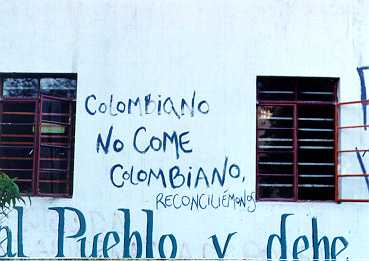 COLOMBIANO
NO COME
COLOMBIANO,
RECONCILIÉMONOS
al Pueblo y debe